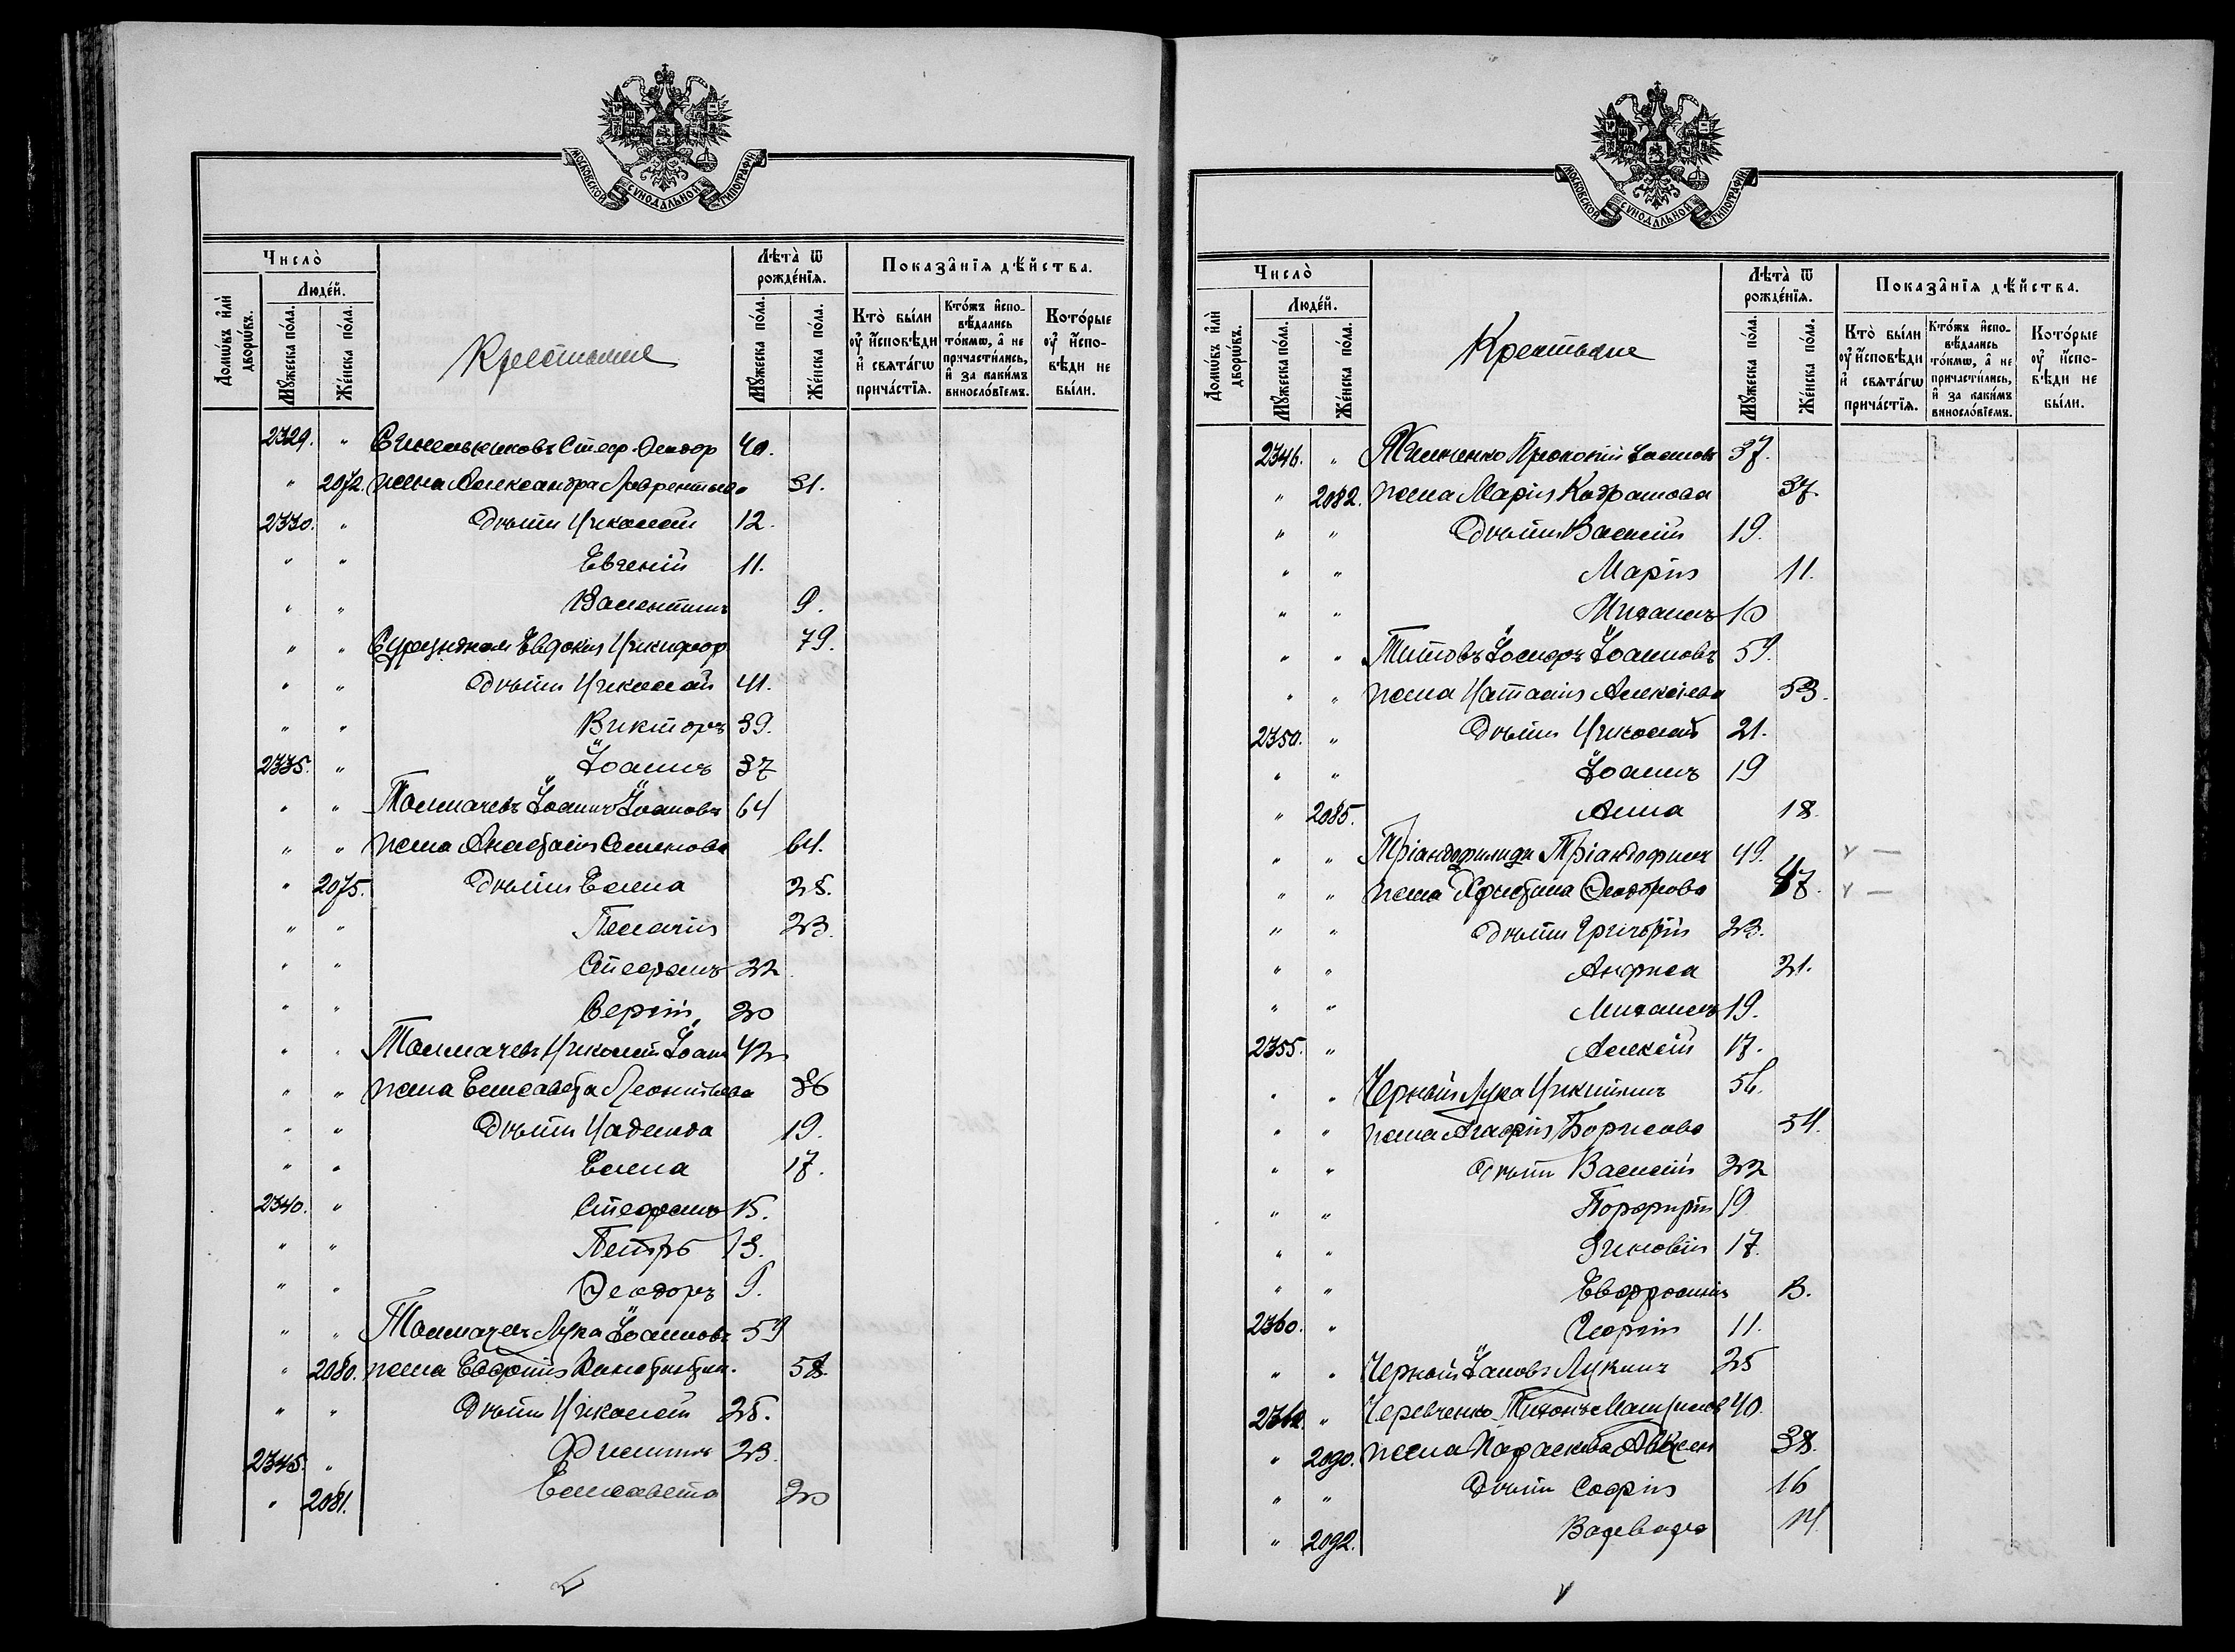 МОСКОВСКОЙ СѴНОДАЛЬНОЙ ТИПОГРАФІИ
Число̀
Домѡ́въ и҆лѝ дворѡ́въ.
Люде́й.
Мꙋ́жеска по́ла.
Же́нска по́ла.
Крестьяне
Лѣта̀ ѿ рожде́нїѧ.
Мꙋ́жеска по́ла.
Же́нска по́ла.
Показа̑нїѧ дѣ́йства.
Кто̀ бы́ли ᲂу҆ и҆́сповѣди и҆ свѧта́гѡ прича́стїѧ.
Кто́жъ и҆спо-вѣ́дались то́кмѡ, а҆ не причасти́лись, и҆ за каки́мъ винослові́емъ.
Кото́рые ᲂу҆ и҆́спо-вѣди не бы́ли.
2329. " Стеф. Ѳеодор 40.
" 2072. жена Александра Лаврентьева 31.
2330. " Дѣти Николай 12.
" " Евгеній 11.
" " Валентина 9.
" " Евдокія Никифор 79.
" " Дѣти Николай 41.
" " Викторъ 39.
2335. " Іоаннъ 37
" " Толмачевъ Іоаннъ Іоанновъ 64
" " жена Анастасія Семенова 64.
" 2075. Дѣти Елена 28.
" " Пелагія 23.
" " Стефанъ 22
" " Сергій 20
" " Толмачевъ Николай Іоан 42
" " жена Елисавета Леонтьева 36
" " Дѣти Надежда 19.
" " Елена 17.
2340. " Стефанъ 15.
" " Петръ 13.
" " Ѳеодоръ 9.
" " Толмачевъ Лука Іоанновъ 59
" 2080. жена Евфимія Константин. 58.
" " Дѣти Николай 25.
2345. " Филиппъ 23.
" 2081. Елисавета 20
МОСКОВСКОЙ СѴНОДАЛЬНОЙ ТИПОГРАФІИ
Число̀
Домѡ́въ и҆лѝ дворѡ́въ.
Люде́й.
Мꙋ́жеска по́ла.
Же́нска по́ла.
Крестьяне
Лѣта̀ ѿ рожде́нїѧ.
Мꙋ́жеска по́ла.
Же́нска по́ла.
Показа̑нїѧ дѣ́йства.
Кто̀ бы́ли ᲂу҆ и҆́сповѣди и҆ свѧта́гѡ прича́стїѧ.
Кто́жъ и҆спо-вѣ́дались то́кмѡ, а҆ не причасти́лись, и҆ за каки́мъ винослові́емъ.
Кото́рые ᲂу҆ и҆́спо-вѣди не бы́ли.
2346. " Прокопій Іоановъ 37.
" 2082. жена Марія Кодратова 37.
" " Дѣти Василій 19.
" " Марія 11.
" " Михаилъ 10
" " Титовъ Іосифъ Іоанновъ 59.
" " жена Наталія Алексіева 53.
2350. " Дѣти Николай 21.
" " Іоаннъ 19
" 2085. Анна 18.
" " Тріандофилиди Тріандофилъ 49.
" " жена Христина Ѳеодорова 47.
" " Дѣти Григорій 23.
" " Анфиса 21.
" " Михаилъ 19.
2355. " Алексій 17.
" " Черный Лука Никитинъ 56.
" " жена Агафія Борисова 54.
" " Дѣти Василій 22
" " Порфирій 19
" " Зиновій 17.
" " Евфросинія 13.
2360. " Георгій 11.
" " Черный Іаковъ Лукинъ 25
2362. " Черевченко Тихонъ 40.
" 2090. жена Параскева 38.
" " Дѣти Софія 16
" 2092. Варвара 14